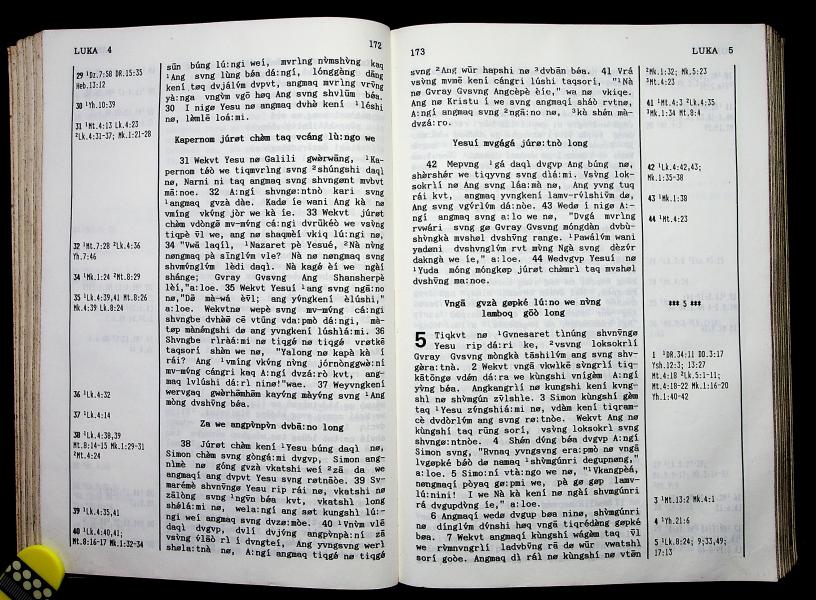 LUKA 4
172
29 ¹Dz.7:58 DR.15:35
Heb.13:12
30 ¹Yh.10:39
31 ¹Mt.4:13 Lk.4:23
²Lk.4:31-37; Mk.1:21-28
32 ¹Mt.7:28 ²Lk.4:36
Yh.7:46
34 ¹Mk.1:24 ²Mt.8:29
35 ¹Lk.4:39,41 Mt.8:26
Mk.4:39 Lk.8:24
36 ¹Lk.4:32
37 ¹Lk.4:14
38 ¹Lk.4:38,39
Mt.8:14-15 Mk.1:29-31
²Mt.4:24
39 ¹Lk.4:35,41
40 ¹Lk.4:40,41;
Mt.8:16-17 Mk.1:32-34
sūn búng lú:ngì weí, mvrı̀ng nv̀mshv̀ng kaq
¹Ang svng lùng béa dá:ngí, lónggàng dāng
kení tøq dvjálv́m dvpvt, angmaq mvrı̀ng vrv̄ng
yà:nga vngv̀m vgō høq Ang svng shvlūm béa.
30 I nı̀gø Yesu nø angmaq dvhè kení ¹lúshì
nø, lèmlē loá:mì.
Kapernom júrøt chø̀m taq vcáng lù:ngo we
31 Wekvt Yesu nø Galili gwø̀rwāng, ¹Ka-
pernom téò we tiqmvrı̀ng svng ²shúngshì daqì
nø, Narnì ni taq angmaq svng shvngønt mvbvt
mā:noe. 32 A:ngí shvngø:ntnò kari svng
¹angmaq gvzà dàe. Kadø íe wani Ang kà nø
vmı́ng vkv́ng jòr we kà íe. 33 Wekvt júrøt
chø̀m vdòngē mv-mv́ng cá:ngì dvrūkéò we vsv̀ng
tiqpè v̄l we, ang nø shaqmèí vkiq lú:ngì nø,
34 "Vwā laqí, ¹Nazaret pè Yesué, ²Nà nv̀ng
nøngmaq pà sı̄nglv́m vle? Nà nø nøngmaq svng
shvmv́nglv́m lédì daqì. Nà kagé èí we ngàí
shánge; Gvray Gvsvng Ang Shanshørpè
lèí,"a:loe. 35 Wekvt Yesuí ¹ang svng ngā:nò
nø,"Dē mà-wá èv̄l; ang yv́ngkení èlúshì,"
a:loe. Wekvtnø wepè svng mv-mv́ng cá:ngì
svngbe dvhàø cē vtūng vda:pmò dá:ngì, mà-
tøp mànéngshì dø ang yvngkení lúshlà:mì. 36
Shvngbe rı̀ràá:mì nø tiqgé nø tiqgé vrøtkē
taqsorí shø̀n we nø, "Yalong nø kapà kà í
ráì? Ang ¹vmı́ng vkv́ng nv̀ng jórnònggwà:nì
mv-mv́ng cángrì kaq A:ngí dvzá:rò kvt, ang-
maq lvlúshì dá:rı̀ nìne!"wae. 37 Weyvngkení
wervgaq gwø̀rhø̄mhø̄m kayv́ng màyv́ng svng ¹Ang
mòng dvshv̄ng béa.
Za we angpv̀npv̀n dvbā:no long
38 Júrøt chø̀m kení ¹Yesu búng daqì nø,
Simon chø̀m svng gòngá:mì dvgvp, Simon ang-
nìmè nø góng gvzà vkatshì weí ²zā da we
angmaqí ang dvpvt Yesu svng røtnāòe. 39 Sv-
marémè shvnv̄ngø Yesu rip ráì nø, vkatshì nø
zàlòng svng ¹ngv̄n béa kvt, vkatshì long
shélá:mì nø, wela:ngì ang søt kungshì lú:-
ngì weí angmaq svng dvzø:mòe. 40 ¹Nv̀m vlē
daqì dvgvp, dvlí dvjv́ng angpv̀npà:nì zā
vsv̀ng v̄lāò rì í dvngtei, Ang yvngsvng werı̀
shøla:tnà nø, A:ngí angmaq tiqgé nø tiqgé
173
LUKA 5
svng ²Ang wūr hapshì nø ³dvbān béa. 41 Vrá
vsv̀ng mvmē kení cángrì lúshì taqsorí, "¹Nà
nø Gvray Gvsvng Angcèpè èíe," wa nø vkiqe.
Ang nø Kristu í we svng angmaqí sháò rvtnø,
A:ngí angmaq svng ²ngā:no nø, ³kà shǿn mà-
dvzá:ro.
Yesuí mvgágá júrø:tnò long
42 Mepvng ¹gá daqì dvgvp Ang búng nø,
shø̀rshǿr we tiqyvng svng dı̀á:mì. Vsv̀ng lok-
sokrlí nø Ang svng láa:mà nø, Ang yvng tuq
ráì kvt, angmaq yvngkení lamv-rv̄lshìvm dø,
Ang svng vgv́rlv́m dá:nòe. 43 Wedø í nı̀gø A:-
ngí angmaq svng a:lo we nø, "Dvgá mvrı̀ng
rvwárì svng gø Gvray Gvsvng móngdàn dvbù-
shv̀ngkà mvshøl dvshv̄ng range. ¹Pawálv́m wani
yadønì dvshvnglv́m rvt mv̀ng Ngà svng dèzv́r
dakngà we íe," a:loe. 44 Wedvgvp Yesuí nø
¹Yuda móng móngkøp júrøt chø̀mrı̀ taq mvshøl
dvshv̄ng ma:noe.
Vngā gvzà gøpké lú:no we nv̀ng
lamboq góò long
5 Tiqkvt nø ¹Gvnesaret tı̀núng shvnv̄ngø
Yesu rip dá:rì ke, ²vsvng loksokrlí
Gvray Gvsvng mòngkà tāshìlv́m ang svng shv-
gø̀ra:tnà. 2 Wekvt vngā vkwı̄kē sv̀ngrlí tiq-
kātōngø vdǿn dá:ra we kùngshì vnı̀gø̀m A:ngí
yv̀ng béa. Angkangrlí nø kungshì kení kvng-
shì nø shv̀mgún zv̄lshìe. 3 Simon kùngshì gø̀m
taq ¹Yesu zı̀ngshìá:mì nø, vdø̀m kení tiqram-
cè dvdòrlv́m ang svng rø:tnòe. Wekvt Ang nø
kùngshì taq rūng sorí, vsv̀ng loksokrì svng
shvngø:ntnòe. 4 Shǿn dv́ng béa dvgvp A:ngí
Simon svng, "Rvnaq yvngsvng era:pmò nø vngā
lvgøpké báò dø namaq ¹shv̀mgúnrì degupnøng,"
a:loe. 5 Simo:ní vtà:ngo we nø, "¹Vkangpèá,
nøngmaqí pòyaq gø:pmì we, pà gø gøp lamv-
lú:nìnì! I we Nà kà kení nø ngàí shvmgúnrì
rá dvgupdv́ng íe," a:loe.
6 Angmaqí wedø dvgup bøa nìne, shv̀mgúnrì
nø dı́nglv́m dv́nshì høq vngā tiqrédéng gøpké
bøa. 7 Wekvt angmaqí kùngshì wágø̀m taq v̄l
we rv̀mnvngrlí ladvbv̄ng rā dø wūr vwatshì
sorí goòe. Angmaq dì ráì nø kùngshì nø vtø̄n
²Mk.1:32; Mk.5:23
³Mt.4:23
41 ¹Mt.4:3 ²Lk.4:35
³Mk.1:34 Mt.8:4
42 ¹Lk.4:42,43;
Mk.1:35-38
43 ¹Mk.1:38
44 ¹Mt.4:23
*** 5 ***
1 ¹DR.34:11 DD.3:17
Ysh.12:3; 13:27
Mt.4:18 ²Lk.5:1-11;
Mt.4:18-22 Mk.1:16-20
Yh.1:40-42
3 ¹Mt.13:2 Mk.4:1
4 ¹Yh.21:6
5 ¹Lk.8:24; 9;33,49;
17:13